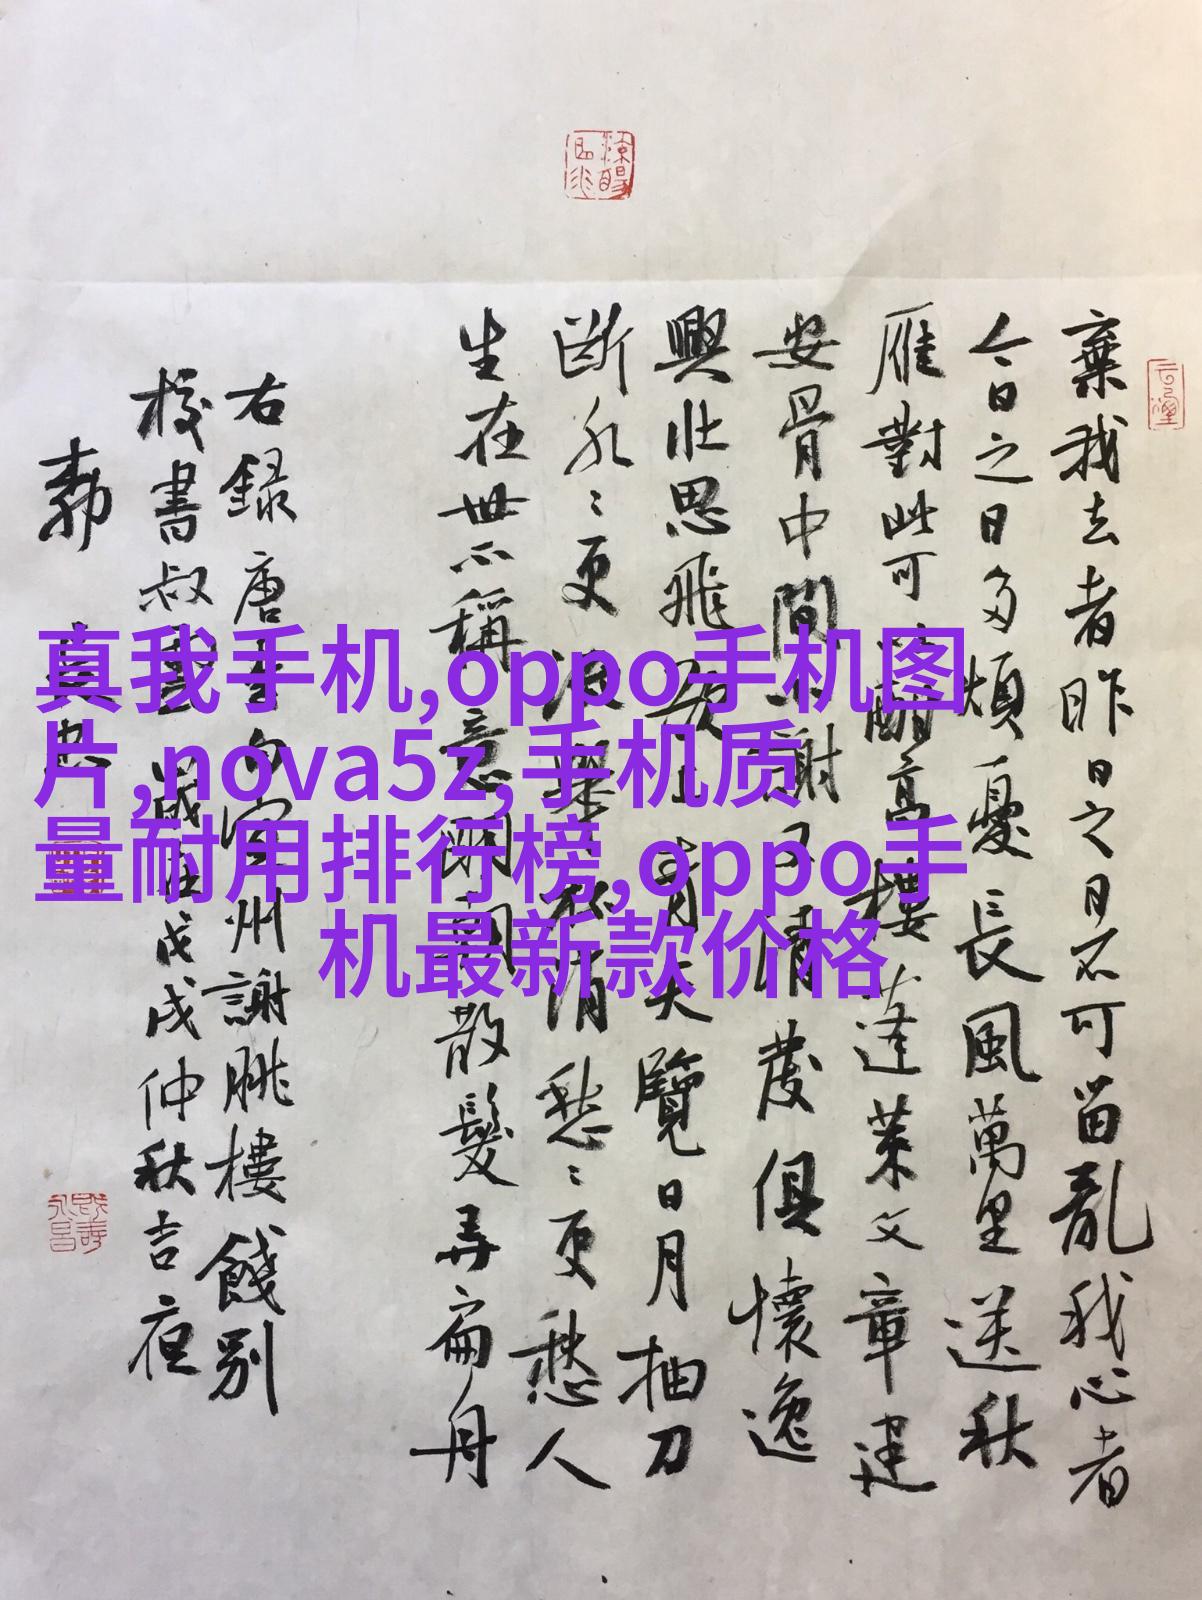 棄我去者昨日之日不可留亂我心者
今日之日多煩憂長風萬里送秋
雁對此可酣高樓蓬萊文章建
安骨中間小謝又清發俱懷逸
興壯思飛欲上青天覽日月抽刀
斷水〻更流舉杯消愁〻更愁人
生在世不稱意明朝散髮弄扁舟
右録唐李白宣州謝朓樓餞別
校書叔雲歲在戊戌仲秋吉夜
真我手机,oppo手机图
片,nova5z,手机质
量耐用排行榜,oppo手
机最新款价格